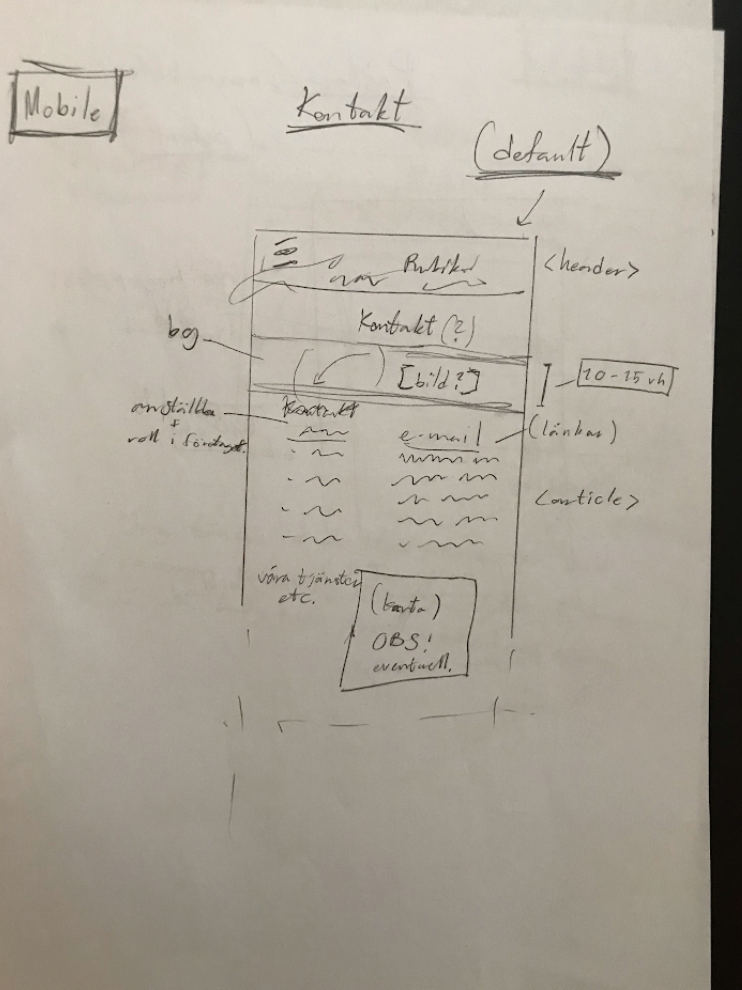 Mobile
Kontakt
(default)
Rubrik
<header>
Kontakt (?)
bg
[bild?]
10-15 vh
Kontakt
anställda
+
roll i företaget.
e-mail
(länkar)
<article>
våra tjänster
etc.
(karta)
OBS!
eventuell.